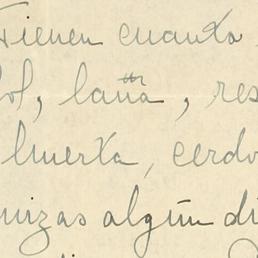 Tienen cuanta
ol, lana, res
huerta, cerdo
uizas algún dí